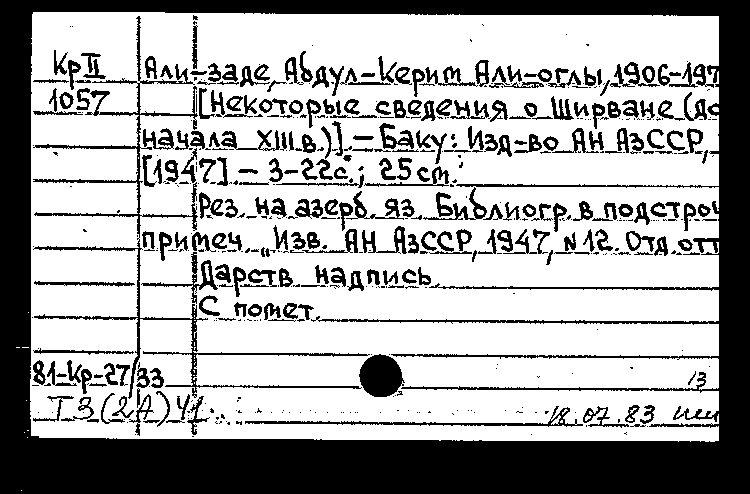 Кр II Али-заде, Абдул-Керим Али-оглы, 1906-197
1057 [Некоторые сведения о Ширване (до
начала XIII в.)]. – Баку: Изд-во АН АзССР,
[1947]. – 3-22 с.; 25 см.
Рез. на азерб. яз. Библиогр. в подстроч
примеч. „Изв. АН АзССР, 1947, N 12. Отд. отт
Дарств. надпись.
С помет.
81-Кр-27/33
13
Т3(2А)41
18.07.83